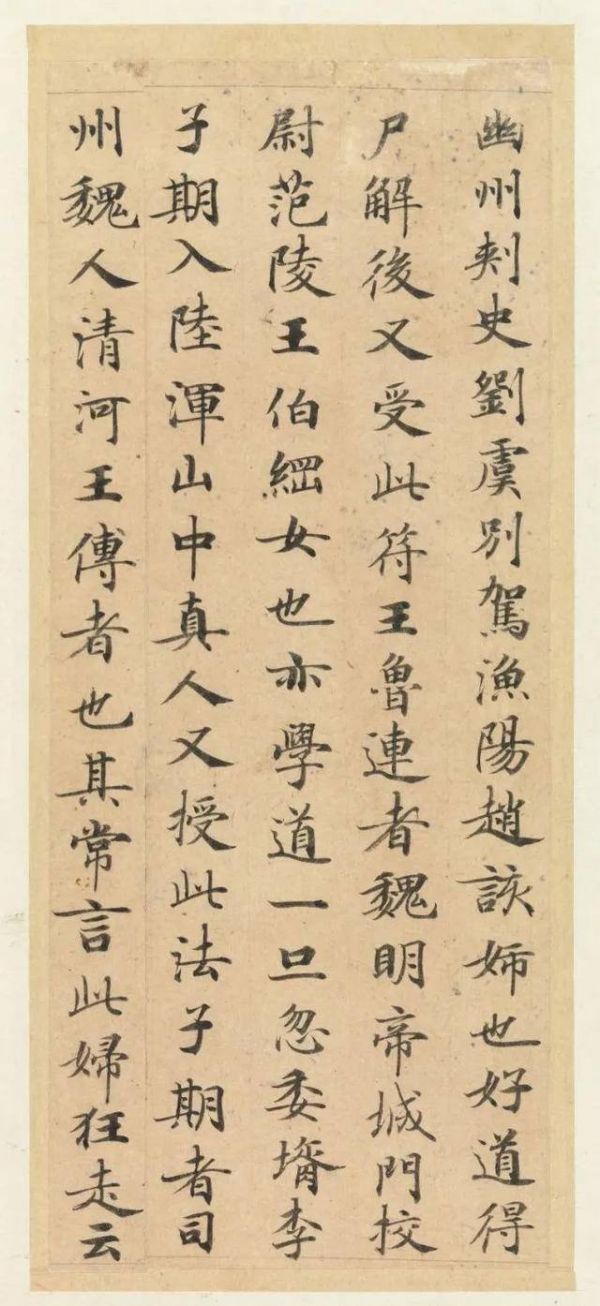 幽州刾史劉虞別駕漁陽趙該姊也好道得
尸解後又受此符王魯連者魏明帝城門校
尉范陵王伯綱女也亦學道一旦忽委壻李
子期入陸渾山中真人又授此法子期者司
州魏人清河王傅者也其常言此婦狂走云